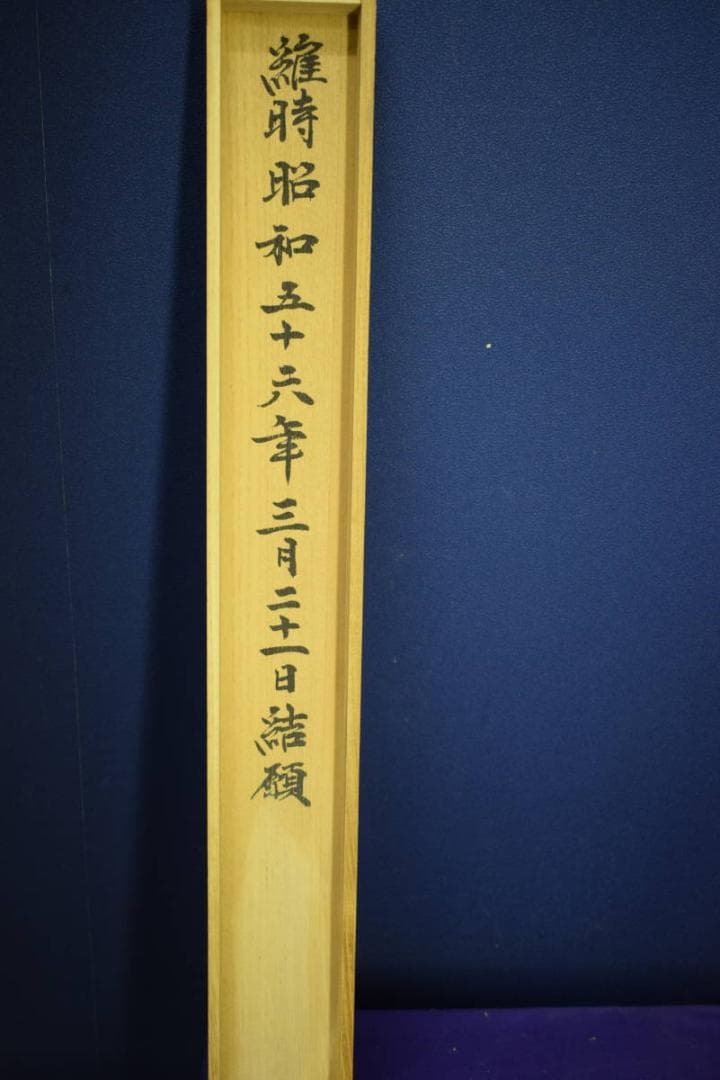 維時昭和五十六年三月二十一日結願